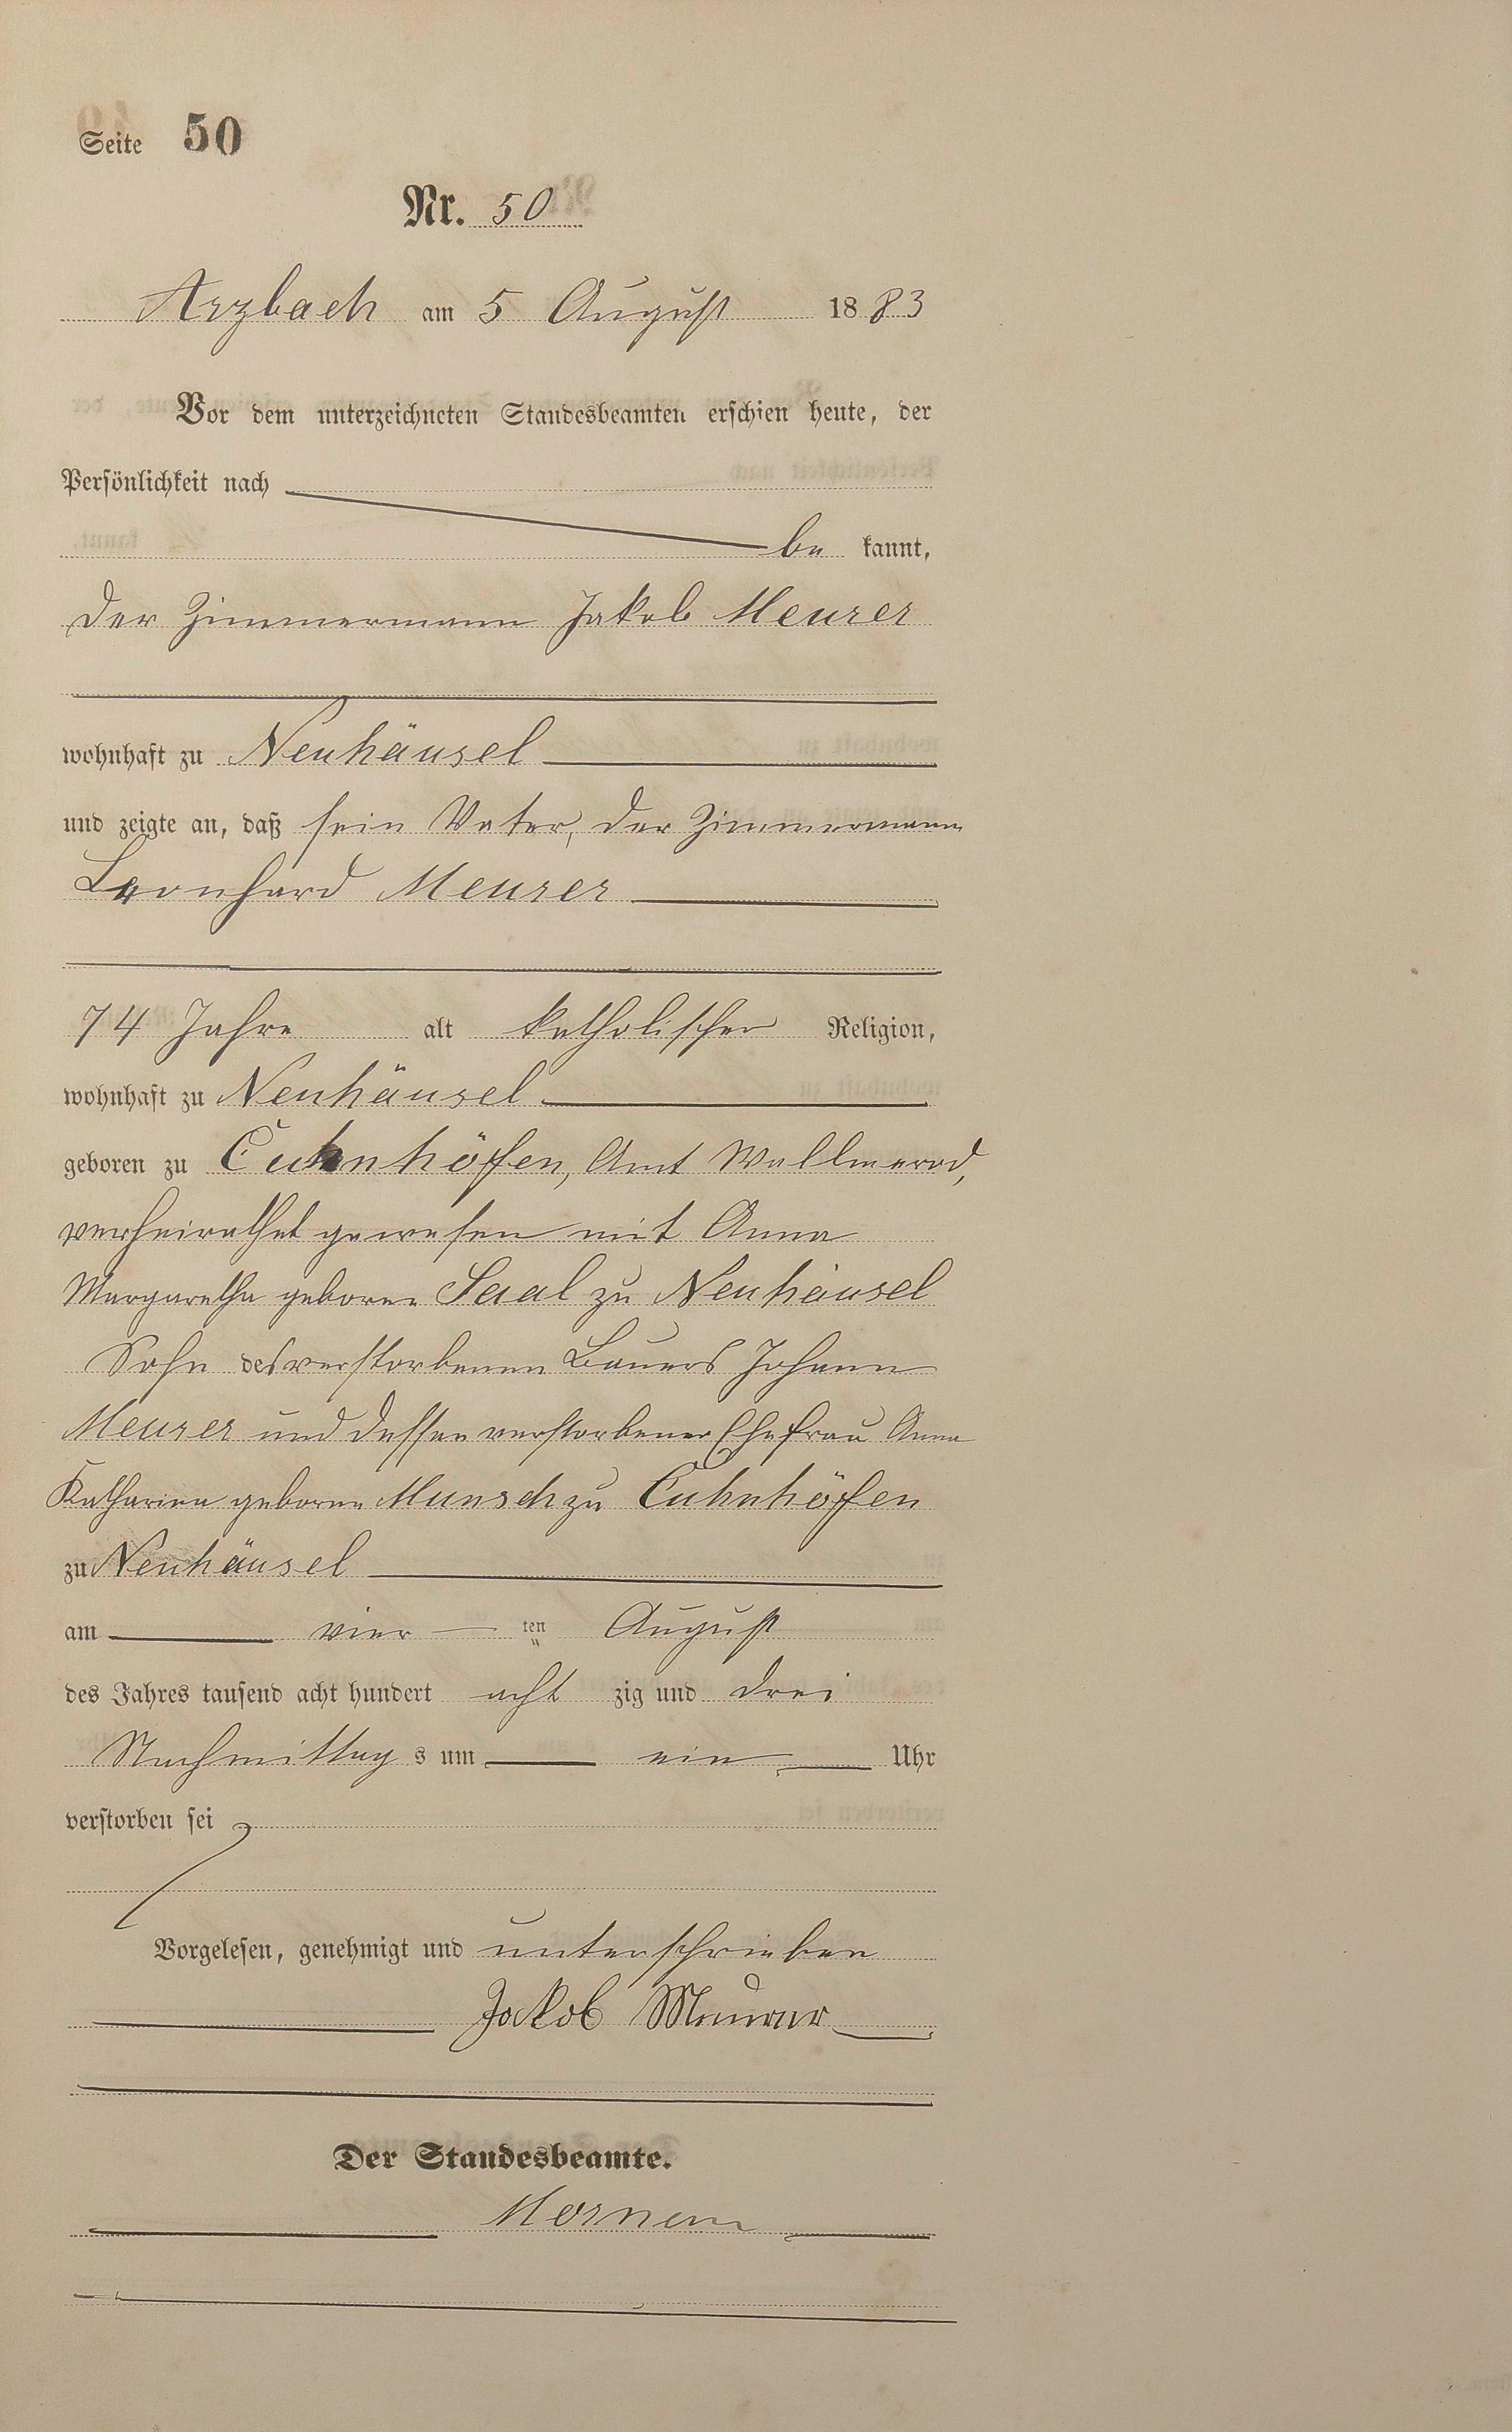 Seite 50
Nr. 50
Arzbach am 5 August 1883
Vor dem unterzeichneten Standesbeamten erschien heute, der
Persönlichkeit nach
be kannt,
der Zimmermann Jakob Meurer
wohnhaft zu Neuhäusel
und zeigte an, daß sein Vater, der Zimmermann
Leonhard Meurer
74 Jahre alt katholischer Religion,
wohnhaft zu Neuhäusel
geboren zu Cuhnhöfen, Amt Wallmerod,
verheirathet gewesen mit Anna
Margaretha geborne Saal zu Neuhäusel
Sohn des verstorbenen Bauers Johann
Meurer und dessen verstorbener Ehefrau Anna
Katharina geborne Munsch zu Cuhnhöfen
zu Neuhäusel
am vier ten August
des Jahres tausend acht hundert acht zig und drei
Nachmittag s um ein Uhr
verstorben sei
Vorgelesen, genehmigt und unterschrieben
Jakob Meurer
Der Standesbeamte.